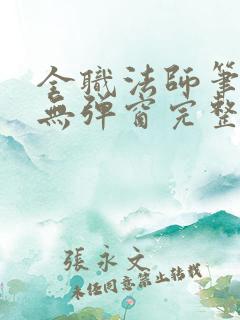 全職法師筆
無彈窗完整
張永文
未經同意禁止轉載